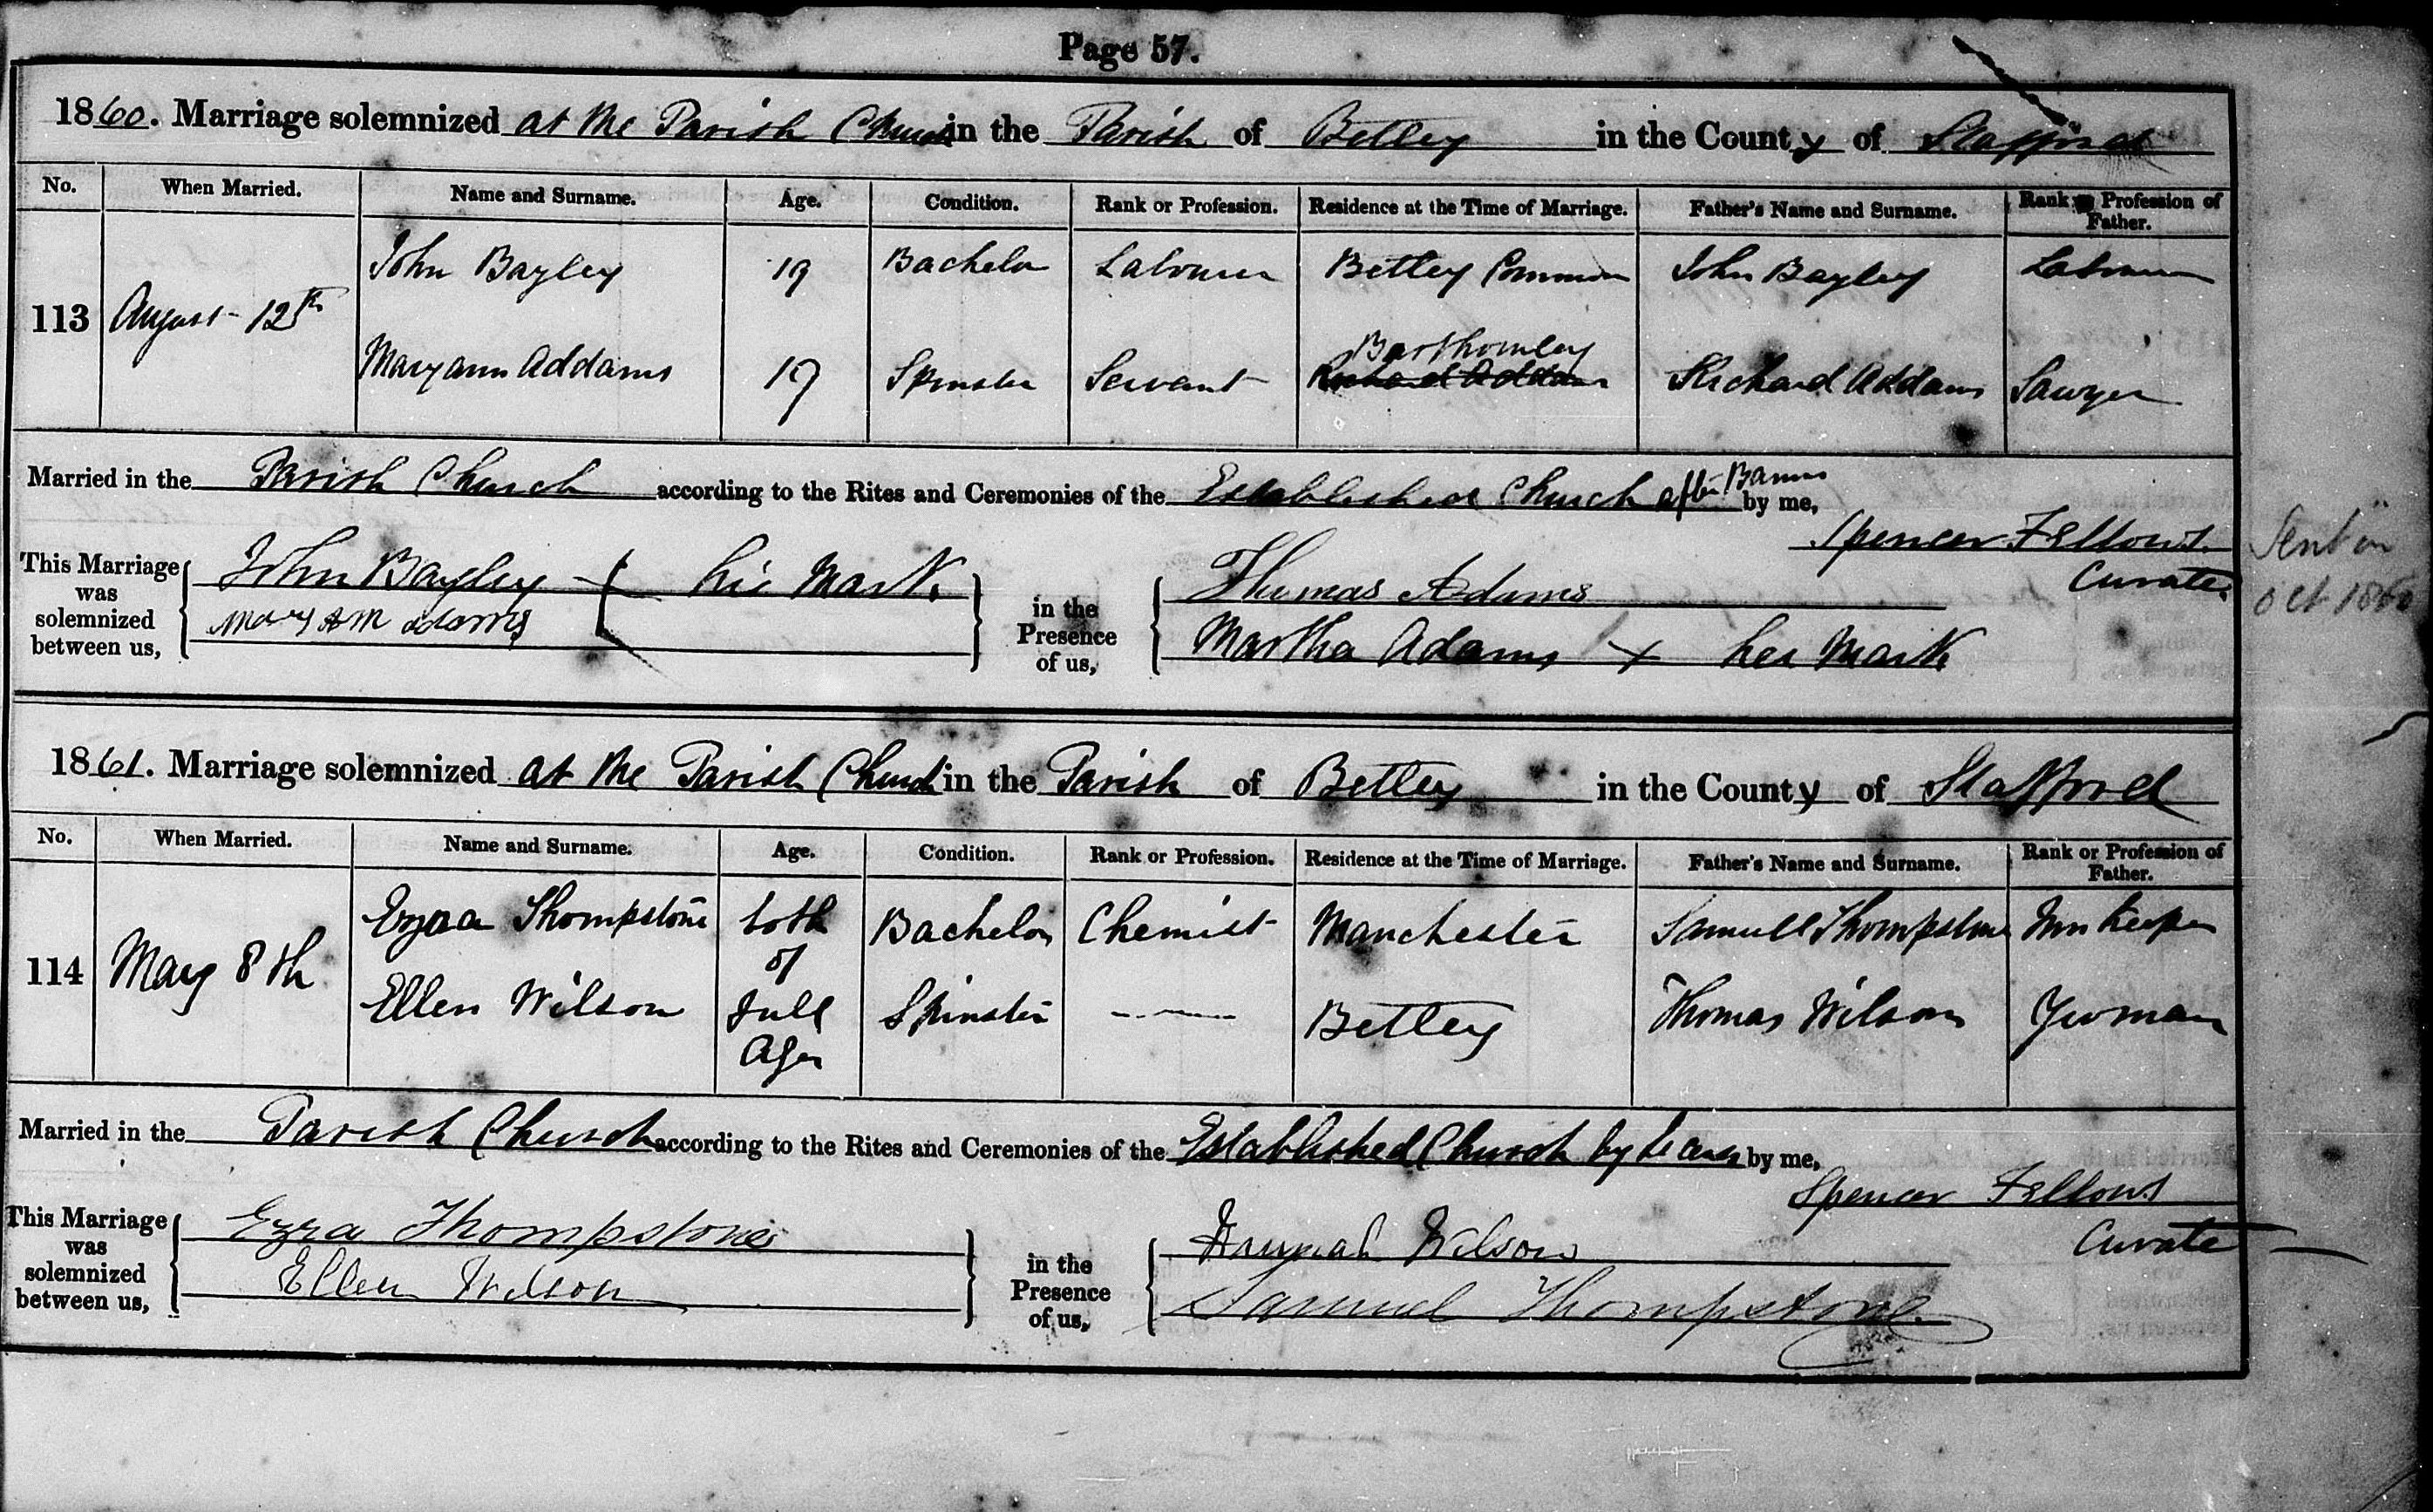 Page 57.
1860. Marriage solemnized at the Parish Church in the Parish of Betley in the County of Stafford
No. When Married. Name and Surname. Age. Condition. Rank or Profession. Residence at the Time of Marriage. Father's Name and Surname. Rank or Profession of Father.
113 August 12th John Bayley 19 Bachelor Labourer Betley Common John Bayley Labourer
Barthomley
Maryann Addams 19 Spinster Servant Richard Addams Richard Addams Sawyer
Married in the Parish Church according to the Rites and Ceremonies of the Established Church after Banns by me,
Spencer Fellows
Curate.
This Marriage was solemnized between us, John Bayley x his Mark
Mary Ann Adams
in the Presence of us, Thomas Adams
Martha Adams x her Mark
Sent in
Oct 1860
1861. Marriage solemnized at the Parish Church in the Parish of Betley in the County of Stafford
No. When Married. Name and Surname. Age. Condition. Rank or Profession. Residence at the Time of Marriage. Father's Name and Surname. Rank or Profession of Father.
114 May 8th Ezra Thompstone both of Bachelor Chemist Manchester Samuel Thompstone Inn Keeper
Ellen Wilson Full Age Spinster Betley Thomas Wilson Yeoman
Married in the Parish Church according to the Rites and Ceremonies of the Established Church by by me,
Spencer Fellows
Curate
This Marriage was solemnized between us, Ezra Thompstone
Ellen Wilson
in the Presence of us, Hannah Wilson
Samuel Thompstone.